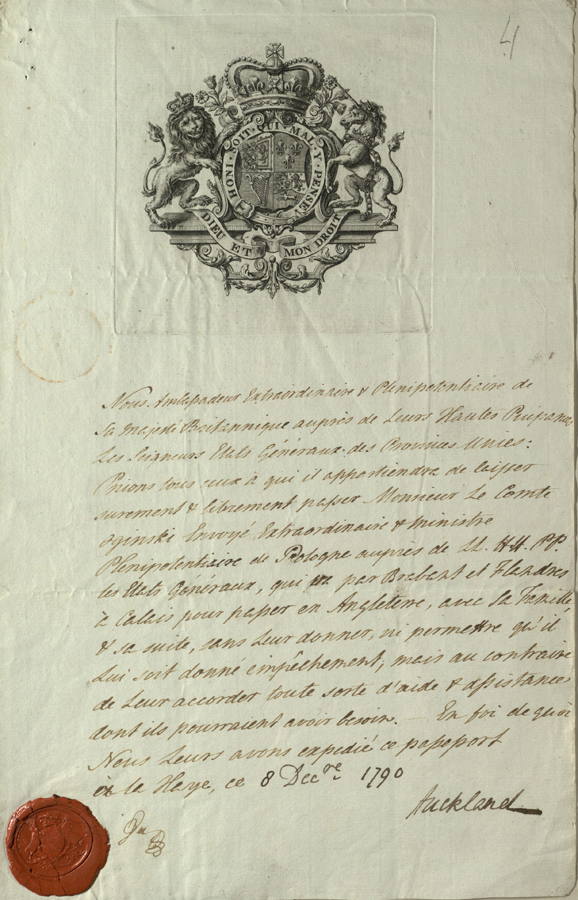 4
HONI · SOIT · QUI · MAL · Y · PENSE
DIEU ET MON DROIT
Nous Ambassadeur Extraordinaire & Plenipotentiaire de
Sa Majesté Britannique auprès de Leurs Hautes Puissances
Les Seigneurs Etats Généraux des Provinces Unies:
Prions tous ceux à qui il appartiendra de laisser
surement & librement passer Monsieur Le Comte
Oginski Envoyé Extraordinaire & Ministre
Plenipotentiaire de Pologne auprès de LL. HH. PP.
les Etats Généraux, qui va par Brabant et Flandres
à Calais pour passer en Angleterre, avec sa Famille
& sa suite, sans Leur donner, ni permettre qu'il
Lui soit donné empêchement, mais au contraire
de Leur accorder toute sorte d'aide & assistance
dont ils pourraient avoir besoin. — En foi de quoi
Nous Leurs avons expedié ce passeport
à la Haye, ce 8 Decre 1790
Auckland